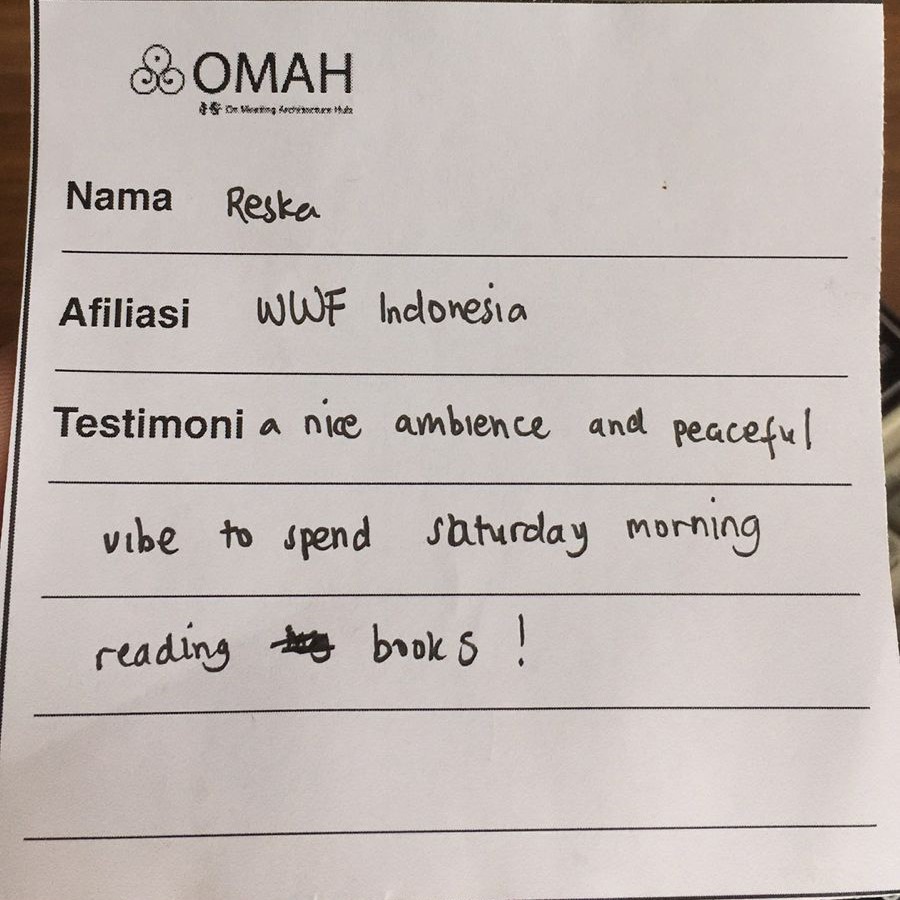 OMAH
Nama Reska
Afiliasi WWF Indonesia
Testimoni a nice ambience and peaceful
vibe to spend saturday morning
reading books !